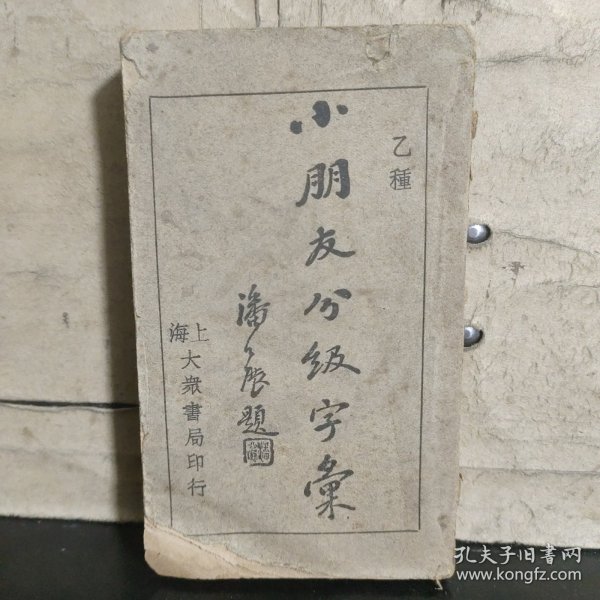 乙種
小朋友分級字彙
潘公展題
上海
大衆書局印行
孔夫子旧书网
www.kongfz.com